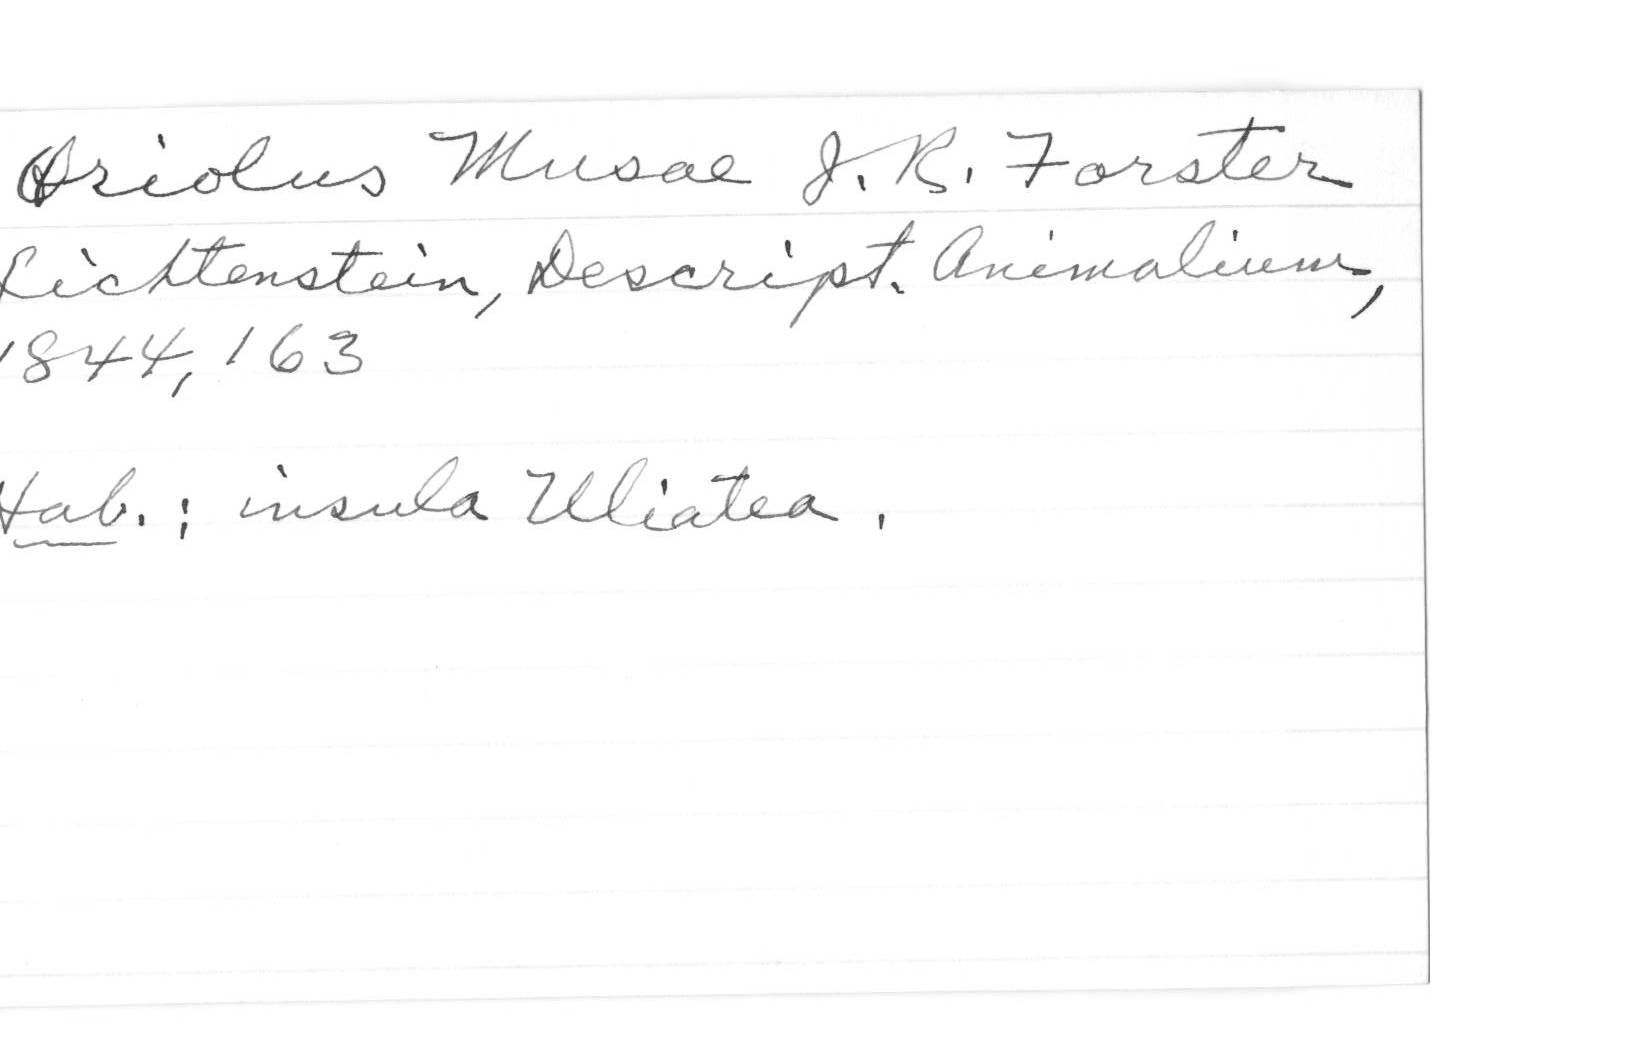 Oriolus Musae J. R. Forster
Lichtenstein, Descript. Animalium,
1844, 163
Hab.: insula Uliatea.